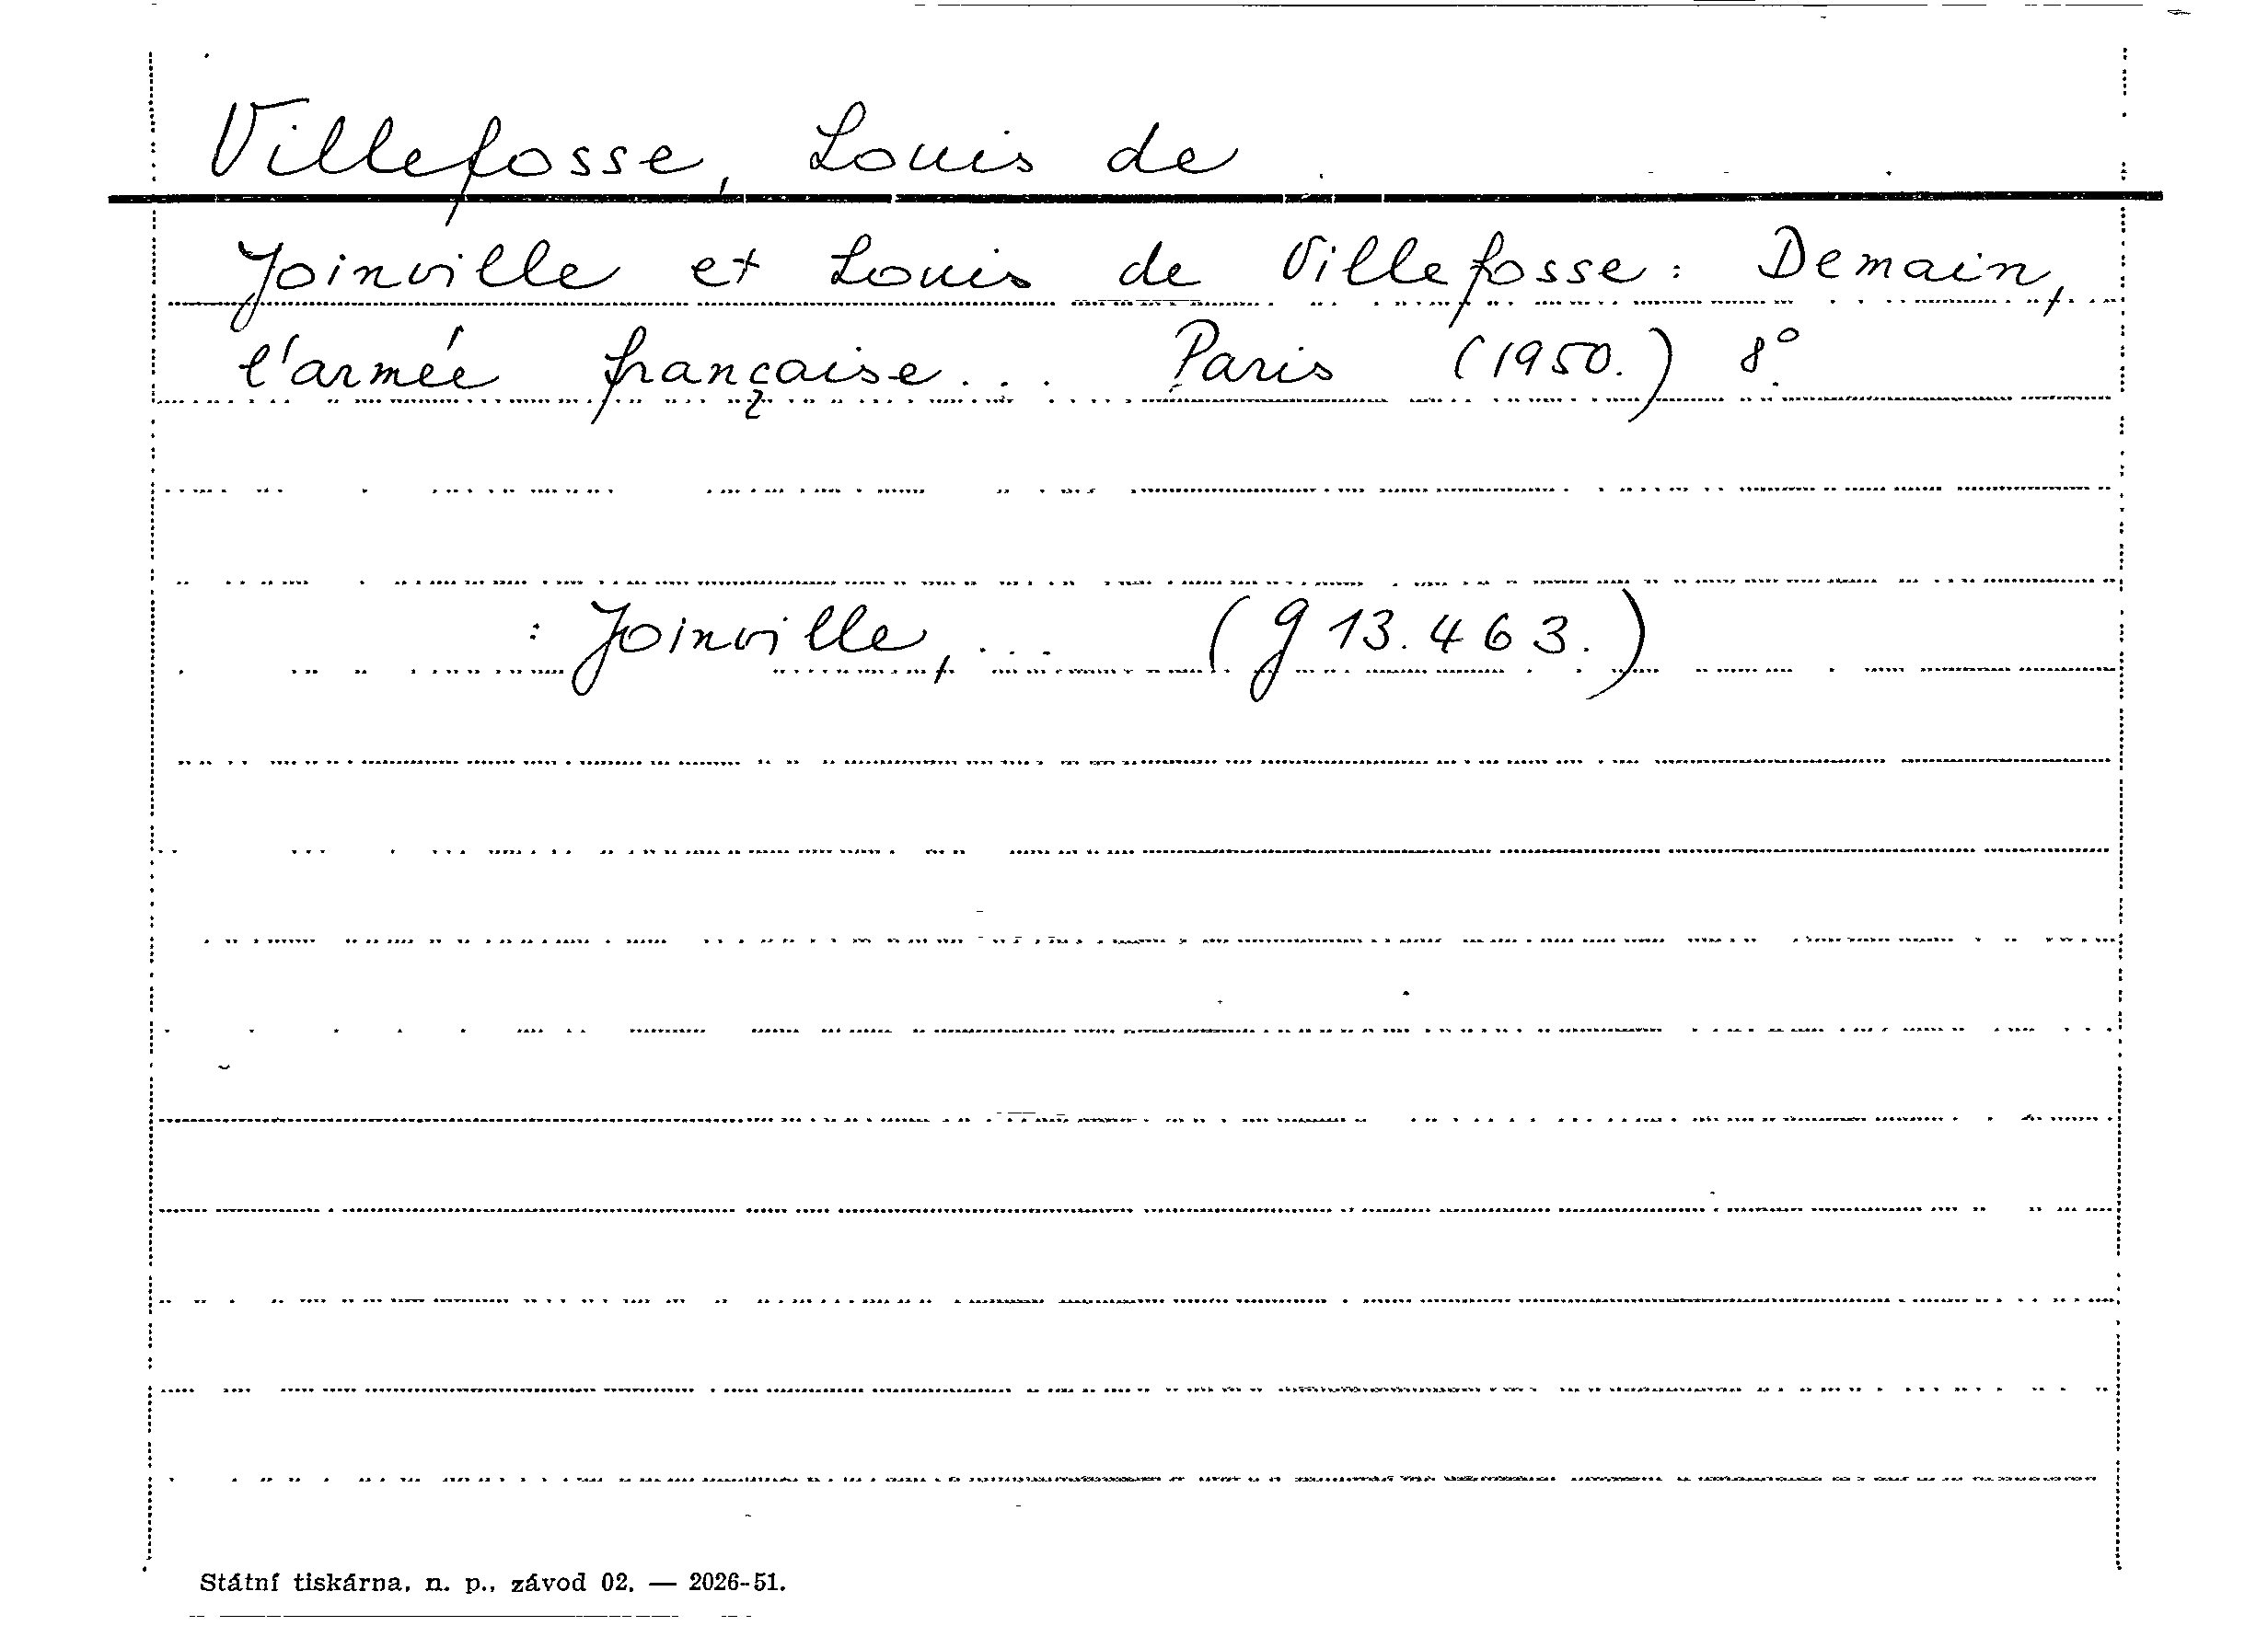 Villefosse, Louis de
Joinville et Louis de Villefosse: Demain,
l'armée française... Paris (1950.) 8°.
: Joinville, ... (g 13.463.)
Státní tiskárna, n. p., závod 02. — 2026-51.